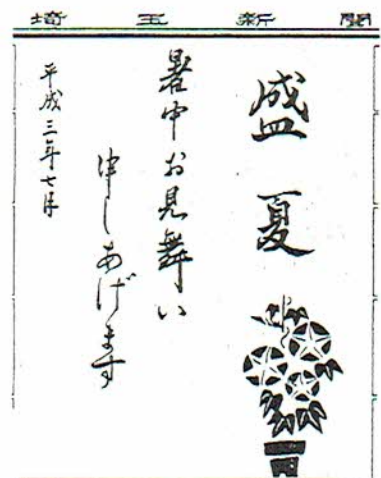 埼玉新聞
盛夏
暑中お見舞い
申しあげます
平成三年七月